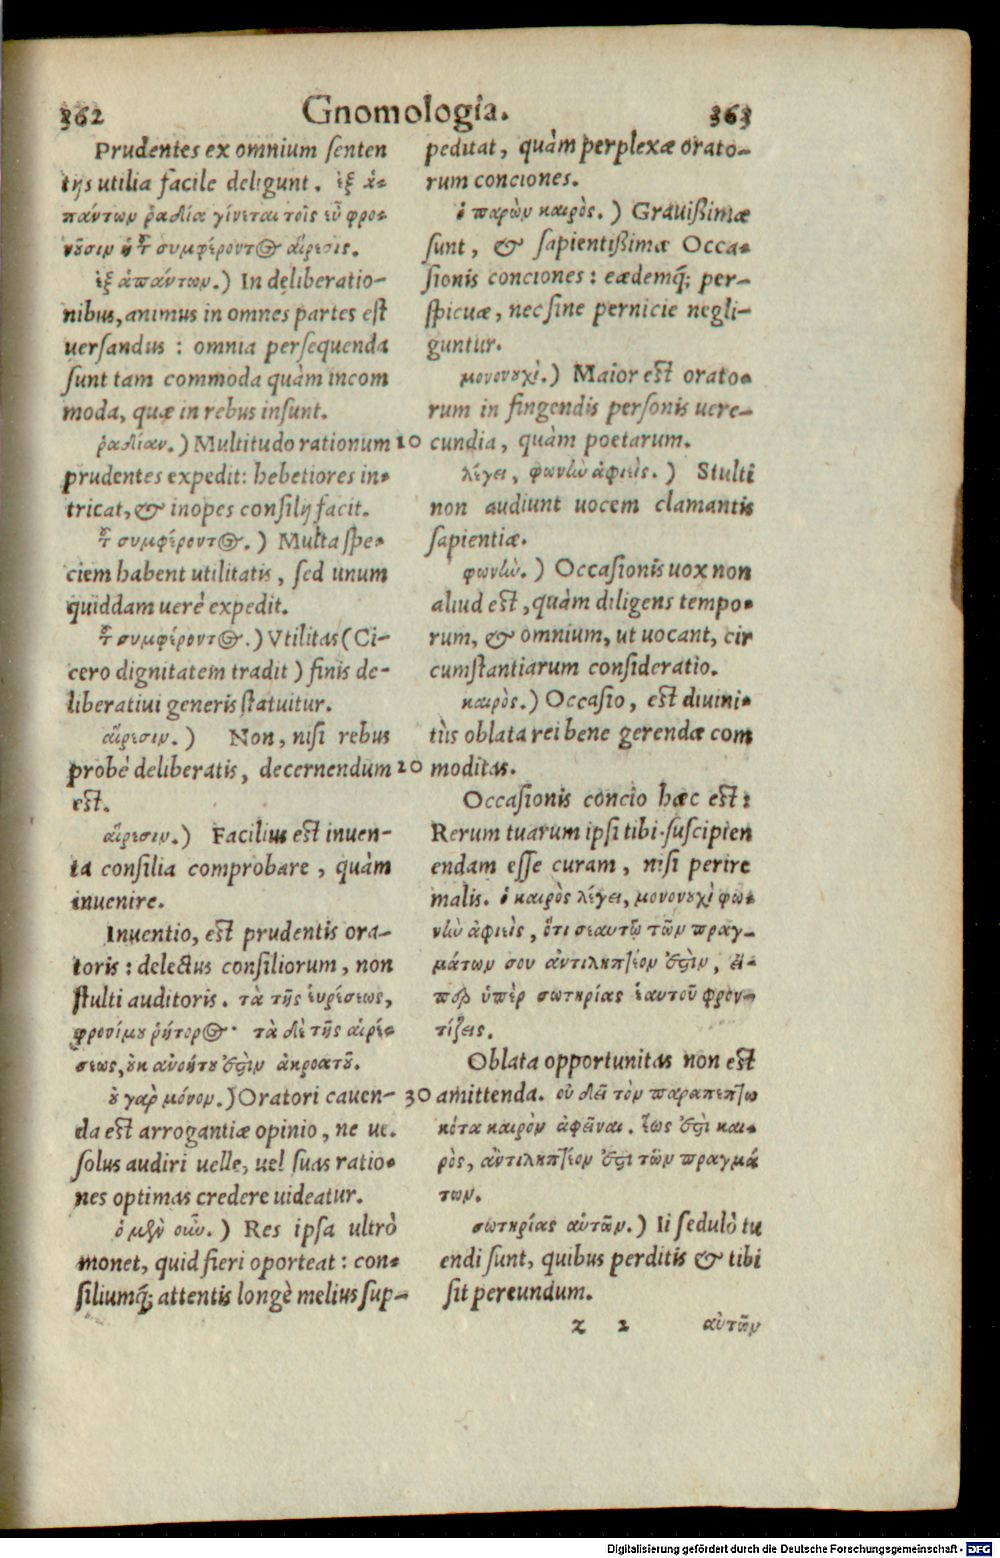 362 Gnomologia. 363
Prudentes ex omnium senten
tijs utilia facile deligunt. ἐξ ἁ-
πάντων ῥᾳδία γίνεται τοῖς εὖ φρο-
νοῦσιν ἡ τοῦ συμφέροντος αἵρεσις.
ἐξ ἁπάντων.) In deliberatio-
nibus, animus in omnes partes est
uersandus: omnia persequenda
sunt tam commoda quàm incom
moda, quæ in rebus insunt.
ῥᾳδίαν.) Multitudo rationum
prudentes expedit: hebetiores in-
tricat, & inopes consilij facit.
τοῦ συμφέροντος.) Multa spe-
ciem habent utilitatis, sed unum
quiddam uerè expedit.
τοῦ συμφέροντος.) Vtilitas (Ci-
cero dignitatem tradit) finis de-
liberatiui generis statuitur.
αἵρεσιν.) Non, nisi rebus
probè deliberatis, decernendum
est.
αἵρεσιν.) Facilius est inuen-
ta consilia comprobare, quàm
inuenire.
Inuentio, est prudentis ora-
toris: delectus consiliorum, non
stulti auditoris. τὰ τῆς εὑρέσεως,
φρονίμου ῥήτορος· τὰ δὲ τῆς αἱρέ-
σεως, οὐκ ἀνοήτου ἐστὶν ἀκροατοῦ.
οὐ γὰρ μόνον.) Oratori cauen-
da est arrogantiæ opinio, ne ue.
solus audiri uelle, uel suas ratio-
nes optimas credere uideatur.
ὁ μὲν οὖν.) Res ipsa ultrò
monet, quid fieri oporteat: con-
siliumq́; attentis longè melius sup-
peditat, quàm perplexæ orato-
rum conciones.
ὁ παρὼν καιρὸς.) Grauißimæ
sunt, & sapientißimæ Occa-
sionis conciones: eædemq́; per-
spicuæ, nec sine pernicie negli-
guntur.
μονονουχὶ.) Maior est orato-
rum in fingendis personis uere-
10 cundia, quàm poetarum.
λέγει, φωνὴν ἀφιεὶς.) Stulti
non audiunt uocem clamantis
sapientiæ.
φωνὴν.) Occasionis uox non
aliud est, quàm diligens tempo-
rum, & omnium, ut uocant, cir
cumstantiarum consideratio.
καιρὸς.) Occasio, est diuini-
tùs oblata rei bene gerendæ com
20 moditas.
Occasionis concio hæc est:
Rerum tuarum ipsi tibi suscipien
endam esse curam, nisi perire
malis. ὁ καιρὸς λέγει, μονονουχὶ φω-
νὴν ἀφιεὶς, ὅτι σεαυτῷ τῶν πραγ-
μάτων σου ἀντιληπτέον ἐστὶν, εἴ-
περ ὑπὲρ σωτηρίας ἑαυτοῦ φρον-
τίζεις.
Oblata opportunitas non est
30 amittenda. οὐ δεῖ τὸν παραπεπτω
κότα καιρὸν ἀφεῖναι. ἕως ἐστὶ και-
ρὸς, ἀντιληπτέον ἐστὶ τῶν πραγμά
των.
σωτηρίας αὐτῶν.) Ii sedulò tu
endi sunt, quibus perditis & tibi
sit pereundum.
z 2 αὐτῶν
Digitalisierung gefördert durch die Deutsche Forschungsgemeinschaft - DFG